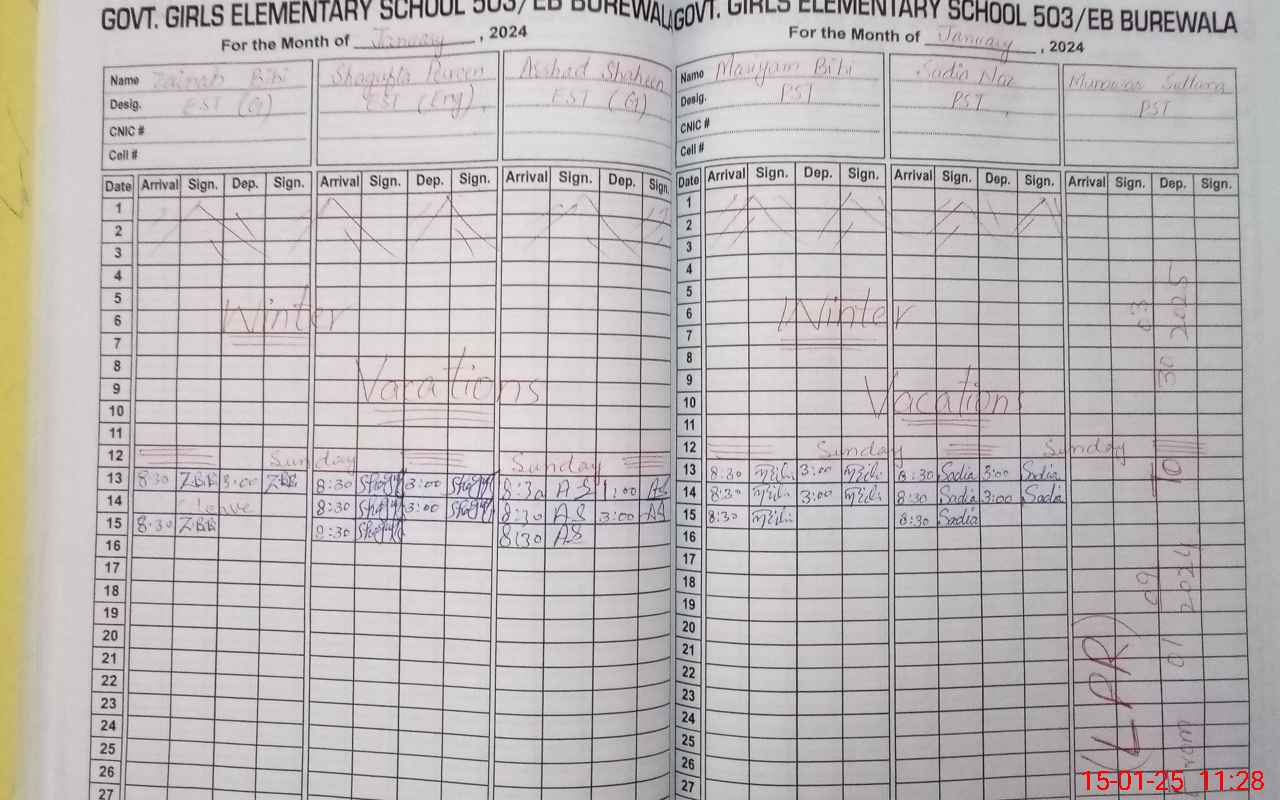 GOVT. GIRLS ELEMENTARY SCHOOL 503/EB BUREWALA
For the Month of January, 2024
Name Zainab Bibi Shagufta Perveen Arshad Shaheen
Desig. EST (G) EST (Eng) EST (G)
CNIC #
Cell #
Date Arrival Sign. Dep. Sign. Arrival Sign. Dep. Sign. Arrival Sign. Dep. Sign.
1
2
3
4
5
6 Winter
7
8
9 Vacations
10
11
12 Sunday Sunday
13 8:30 ZBB 3:00 ZBB 8:30 3:00 8:30 AS 1:00 AS
14 leave 8:30 3:00 8:30 AS 3:00 AS
15 8:30 ZBB 8:30 8:30 AS
16
17
18
19
20
21
22
23
24
25
26
27
GOVT. GIRLS ELEMENTARY SCHOOL 503/EB BUREWALA
For the Month of January, 2024
Name Maryam Bibi Sadia Naz
Desig. PST PST PST
CNIC #
Cell #
Date Arrival Sign. Dep. Sign. Arrival Sign. Dep. Sign. Arrival Sign. Dep. Sign.
1
2
3
4
5
6 Winter
7
8
9
10 Vacations
11
12 Sunday Sunday
13 8:30 3:00 8:30 Sadia 3:00 Sadia
14 8:30 3:00 8:30 Sadia 3:00 Sadia
15 8:30 8:30 Sadia
16
17
18
19
20
21
22
23
24
25
26
27
(LPR)
From 01 09 2024 To 30 03 2025
15-01-25 11:28